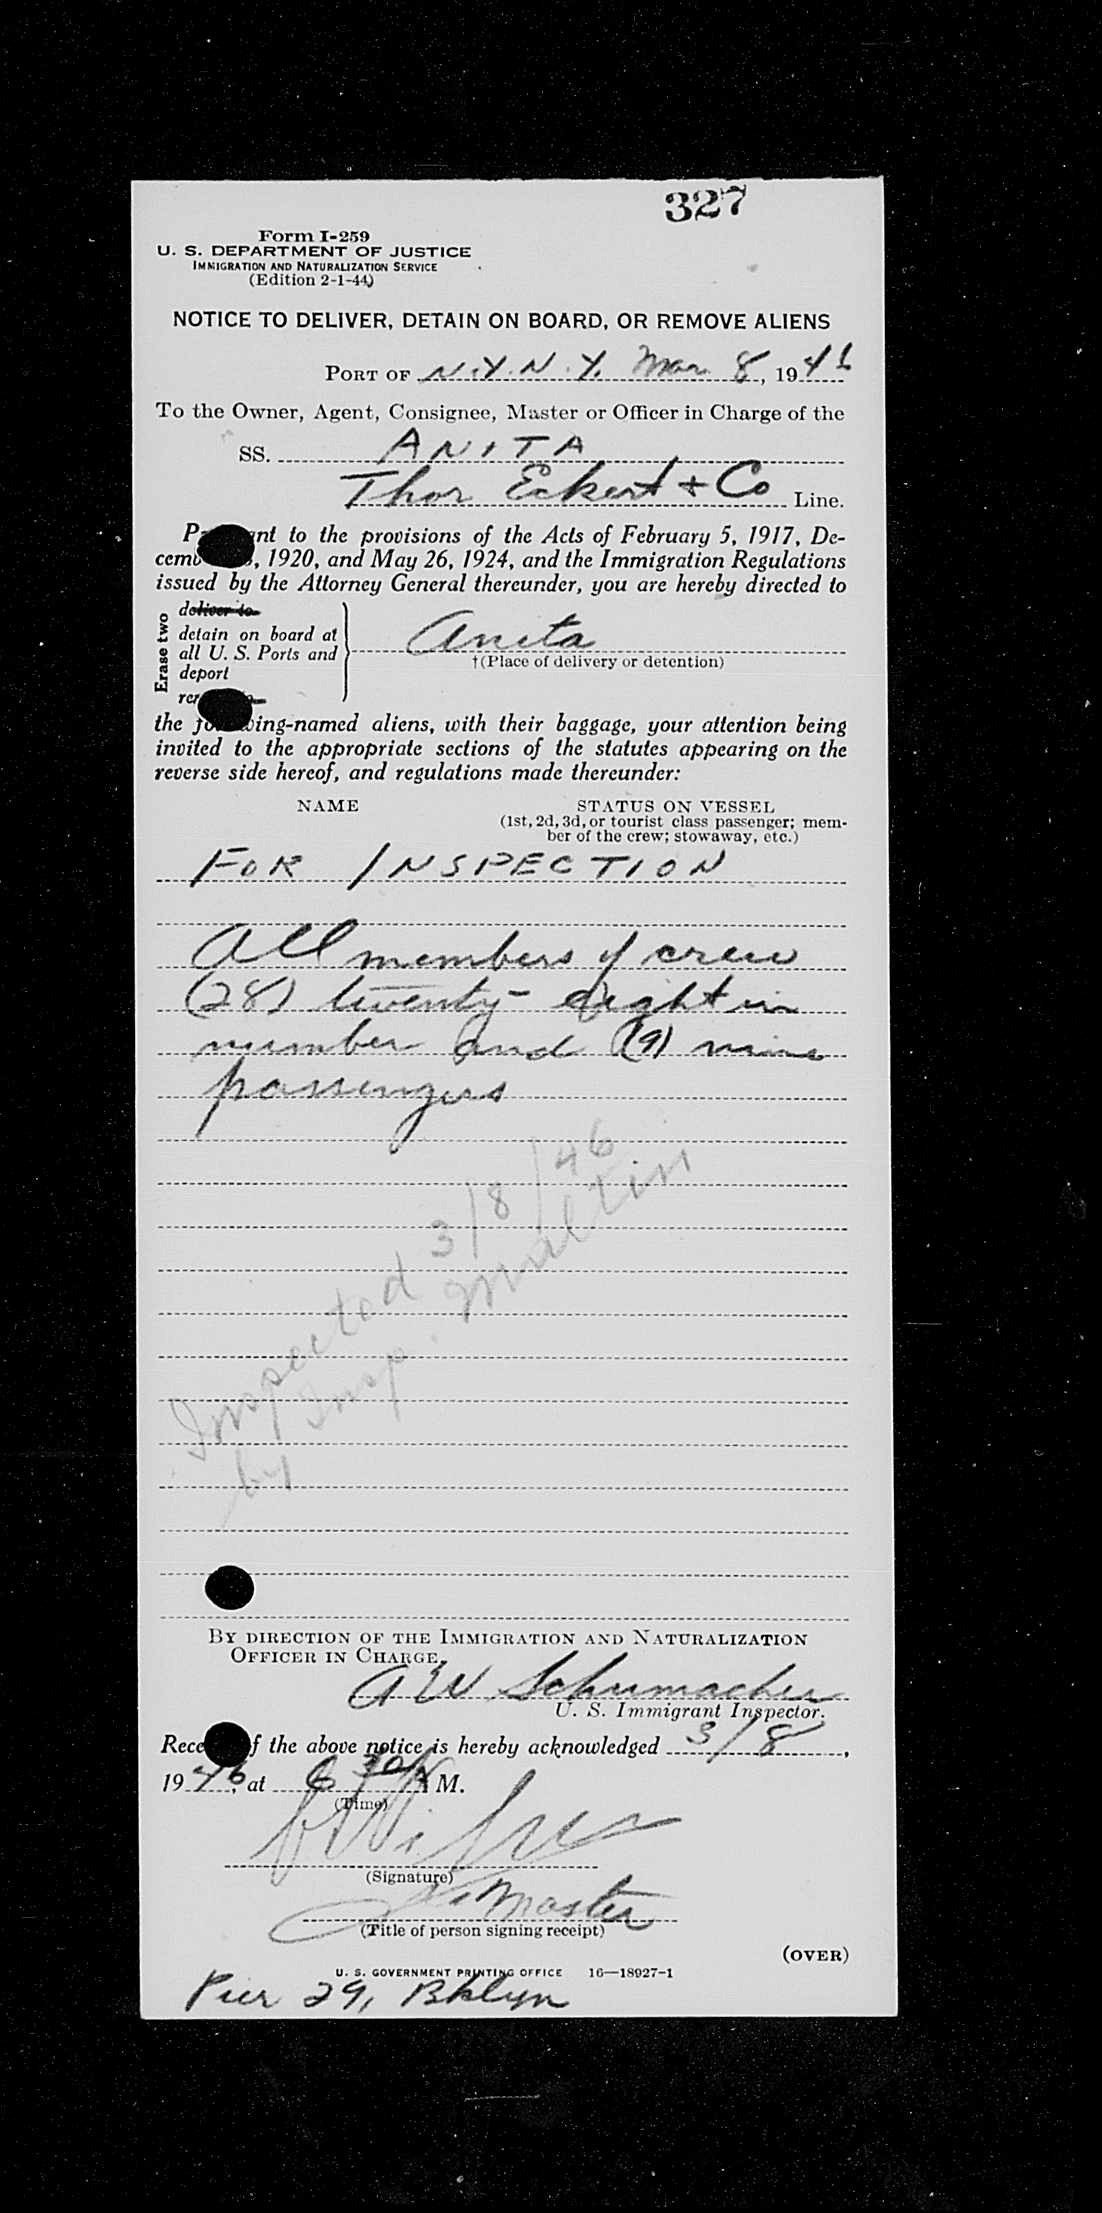 327
Form I-259
U. S. DEPARTMENT OF JUSTICE
IMMIGRATION AND NATURALIZATION SERVICE
(Edition 2-1-44)
NOTICE TO DELIVER, DETAIN ON BOARD, OR REMOVE ALIENS
PORT OF N.Y. N.Y. Mar. 8, 1946
To the Owner, Agent, Consignee, Master or Officer in Charge of the
SS. ANITA
Thor Eckert & Co Line.
nt to the provisions of the Acts of February 5, 1917, De-
cem , 1920, and May 26, 1924, and the Immigration Regulations
issued by the Attorney General thereunder, you are hereby directed to
Erase two
deliver to
detain on board at
all U. S. Ports and
deport
Anita
†(Place of delivery or detention)
the following-named aliens, with their baggage, your attention being
invited to the appropriate sections of the statutes appearing on the
reverse side hereof, and regulations made thereunder:
NAME STATUS ON VESSEL
(1st, 2d, 3d, or tourist class passenger; mem-
ber of the crew; stowaway, etc.)
FOR INSPECTION
All members of crew
(28) twenty-eight in
number and (9) nine
passengers
Inspected 3/8/46
by Insp.
BY DIRECTION OF THE IMMIGRATION AND NATURALIZATION
OFFICER IN CHARGE.
A E W Schumacher
U. S. Immigrant Inspector.
Rece f the above notice is hereby acknowledged 3/8,
1946, at 6 30 A M.
(Time)
(Signature)
Master
(Title of person signing receipt)
(OVER)
U. S. GOVERNMENT PRINTING OFFICE 16—18927-1
Pier 29, Bklyn